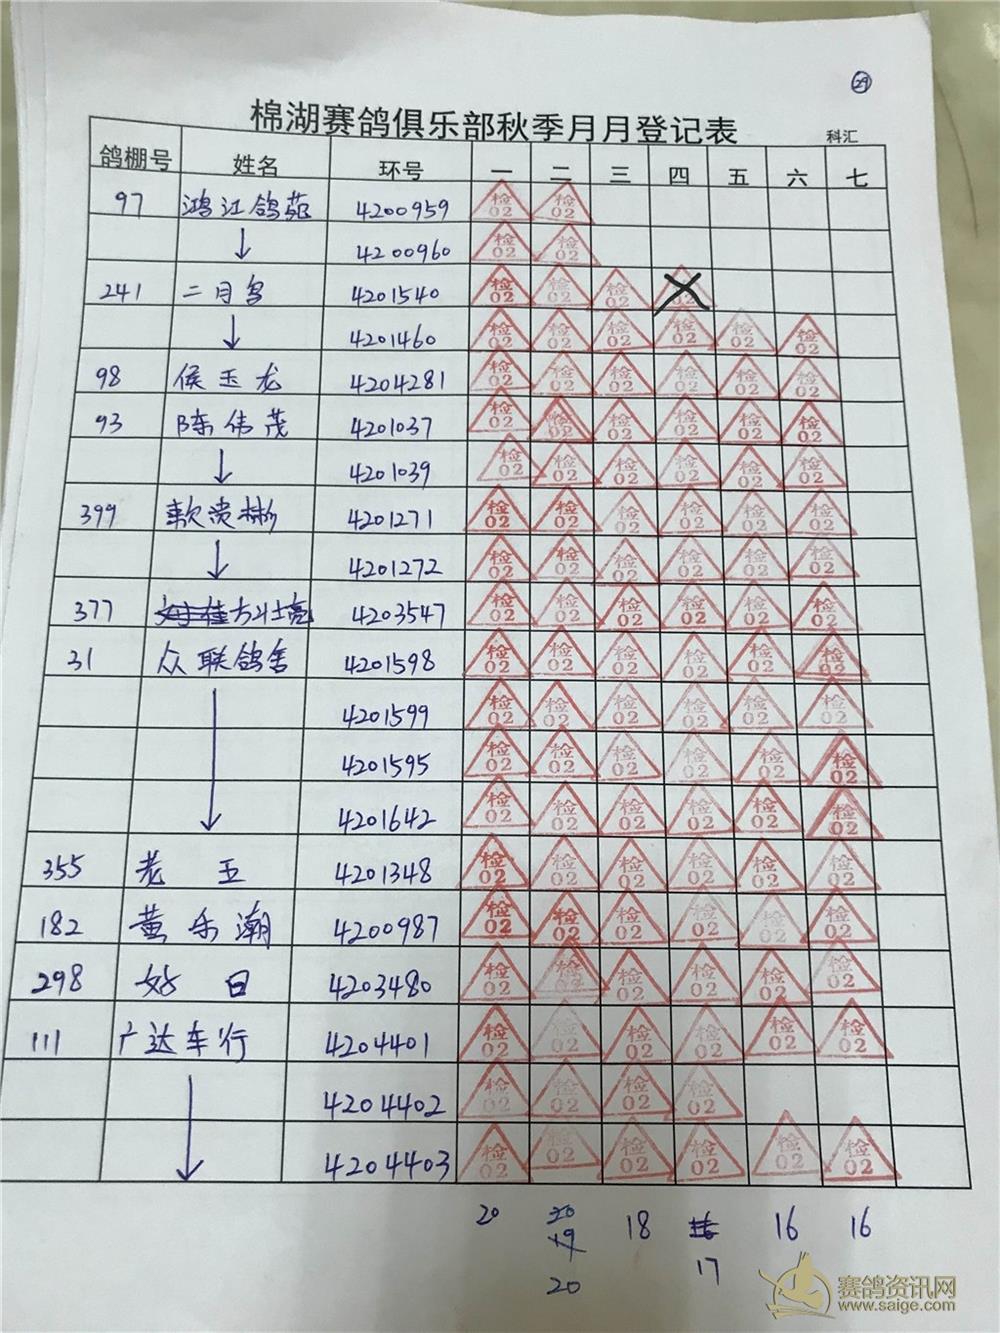 29
棉湖赛鸽俱乐部秋季月月登记表
科汇
鸽棚号 姓名 环号 一 二 三 四 五 六 七
97 鸿江鸽苑 4200959 检02 检02
↓ 4200960 检02 检02
241 二月鸟 4201540 检02 检02 检02 检02
↓ 4201460 检02 检02 检02 检02 检02 检02
98 侯玉龙 4204281 检02 检02 检02 检02 检02 检02
93 陈伟茂 4201037 检02 检02 检02 检02 检02 检02
↓ 4201039 检02 检02 检02 检02 检02 检02
399 彬 4201271 检02 检02 检02 检02 检02 检02
↓ 4201272 检02 检02 检02 检02 检02 检02
377 4203547 检02 检02 检02 检02 检02 检02
31 众联鸽舍 4201598 检02 检02 检02 检02 检02 检02
4201599 检02 检02 检02 检02 检02 检02
4201595 检02 检02 检02 检02 检02 检02
↓ 4201642 检02 检02 检02 检02 检02 检02
355 老玉 4201348 检02 检02 检02 检02 检02 检02
182 黄乐潮 4200987 检02 检02 检02 检02 检02 检02
298 好日 4203480 检02 检02 检02 检02 检02 检02
111 广达车行 4204401 检02 检02 检02 检02 检02 检02
4204402 检02 检02 检02 检02
↓ 4204403 检02 检02 检02 检02 检02 检02
20 20 18 16 16 16
19 17
20
赛鸽资讯网
www.saige.com